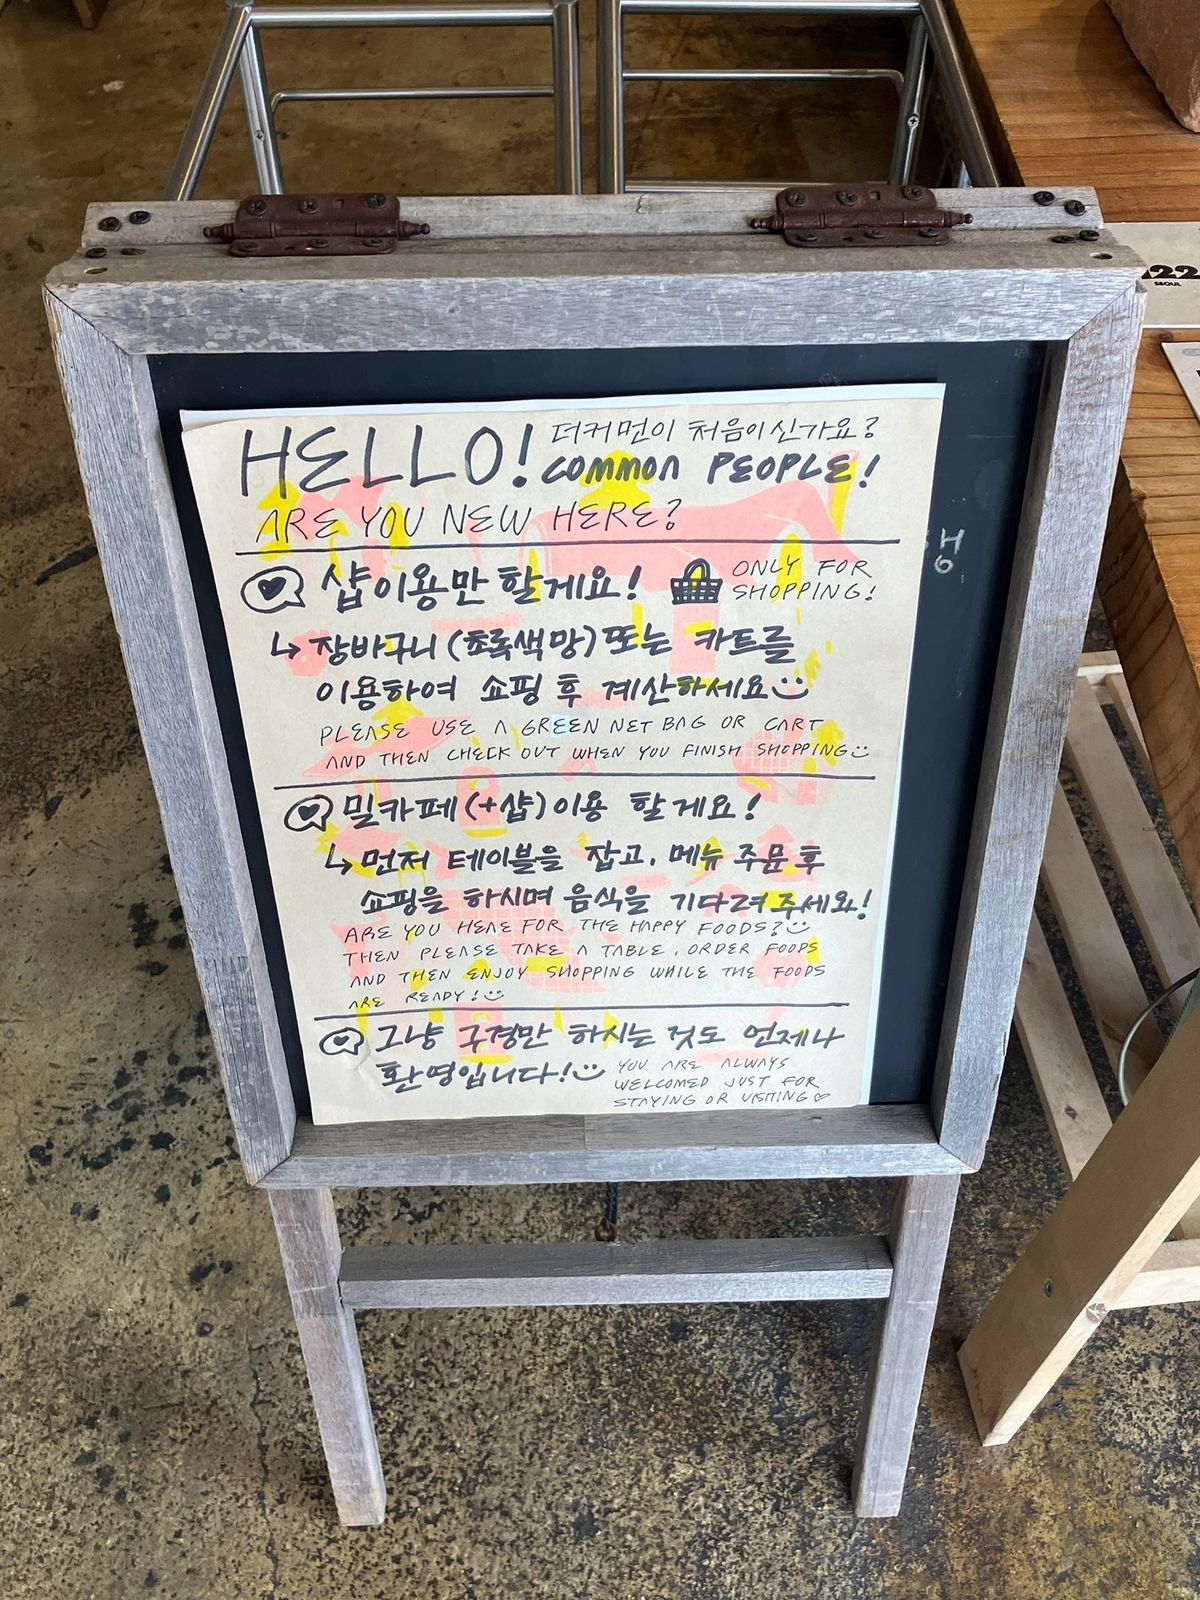 HELLO! 더커먼이 처음이신가요?
COMMON PEOPLE!
ARE YOU NEW HERE?
샵이용만 할게요! ONLY FOR
SHOPPING!
↳ 장바구니(초록색망) 또는 카트를
이용하여 쇼핑 후 계산하세요
PLEASE USE A GREEN NET BAG OR CART
AND THEN CHECK OUT WHEN YOU FINISH SHOPPING
밀카페(+샵)이용 할게요!
↳ 먼저 테이블을 잡고, 메뉴 주문 후
쇼핑을 하시며 음식을 기다려주세요!
ARE YOU HERE FOR THE HAPPY FOODS?
THEN PLEASE TAKE A TABLE, ORDER FOODS
AND THEN ENJOY SHOPPING WHILE THE FOODS
ARE READY!
그냥 구경만 하시는 것도 언제나
환영입니다! YOU ARE ALWAYS
WELCOMED JUST FOR
STAYING OR VISITING
H
6
22
SEOUL